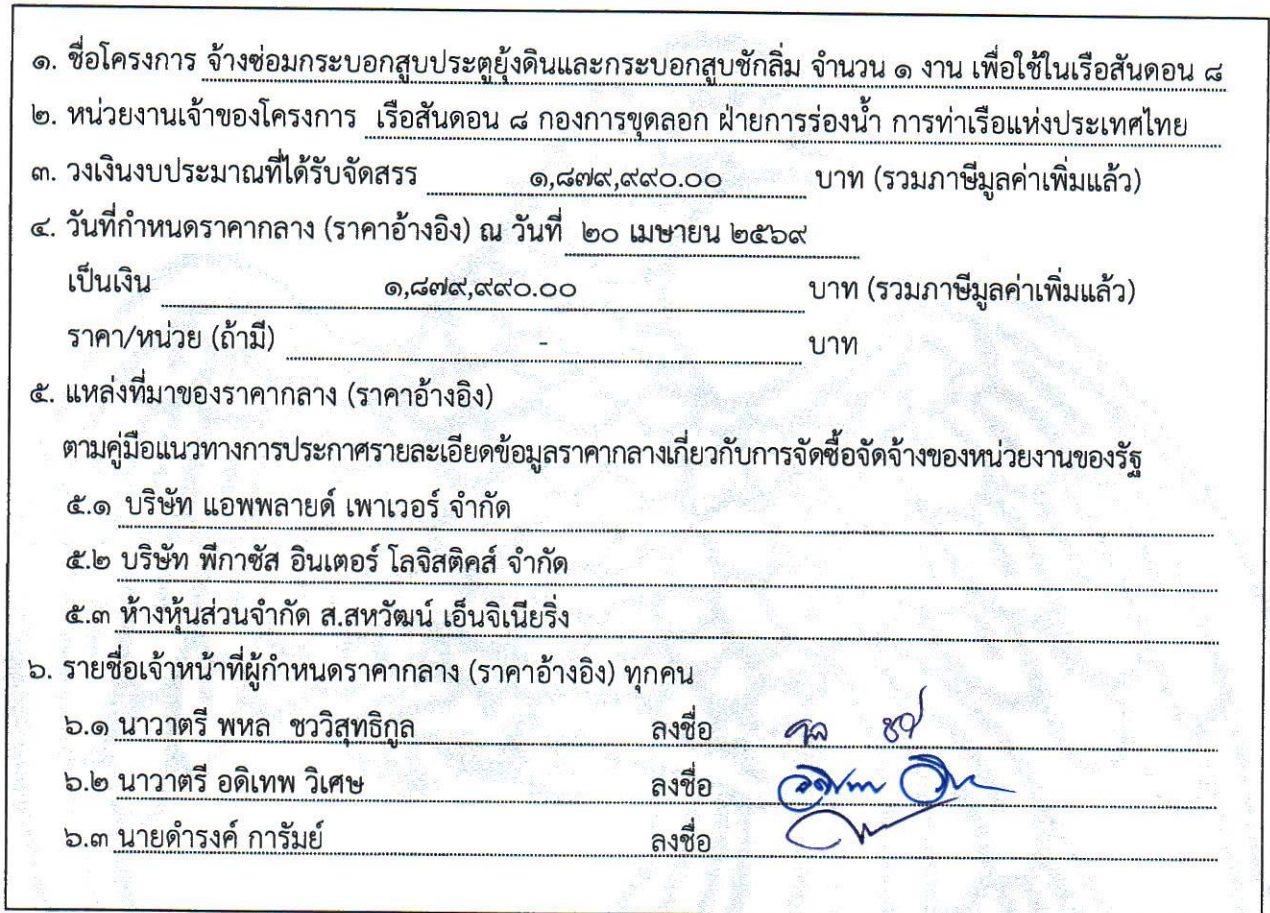 ๑. ชื่อโครงการ จ้างซ่อมกระบอกสูบประตูยุ้งดินและกระบอกสูบชักลิ่ม จำนวน ๑ งาน เพื่อใช้ในเรือสันดอน ๘
๒. หน่วยงานเจ้าของโครงการ เรือสันดอน ๘ กองการขุดลอก ฝ่ายการร่องน้ำ การท่าเรือแห่งประเทศไทย
๓. วงเงินงบประมาณที่ได้รับจัดสรร ๑,๘๗๙,๙๙๐.๐๐ บาท (รวมภาษีมูลค่าเพิ่มแล้ว)
๔. วันที่กำหนดราคากลาง (ราคาอ้างอิง) ณ วันที่ ๒๐ เมษายน ๒๕๖๙
เป็นเงิน ๑,๘๗๙,๙๙๐.๐๐ บาท (รวมภาษีมูลค่าเพิ่มแล้ว)
ราคา/หน่วย (ถ้ามี) - บาท
๕. แหล่งที่มาของราคากลาง (ราคาอ้างอิง)
ตามคู่มือแนวทางการประกาศรายละเอียดข้อมูลราคากลางเกี่ยวกับการจัดซื้อจัดจ้างของหน่วยงานของรัฐ
๕.๑ บริษัท แอพพลายด์ เพาเวอร์ จำกัด
๕.๒ บริษัท พีกาซัส อินเตอร์ โลจิสติคส์ จำกัด
๕.๓ ห้างหุ้นส่วนจำกัด ส.สหวัฒน์ เอ็นจิเนียริ่ง
๖. รายชื่อเจ้าหน้าที่ผู้กำหนดราคากลาง (ราคาอ้างอิง) ทุกคน
๖.๑ นาวาตรี พหล ชววิสุทธิกูล ลงชื่อ
๖.๒ นาวาตรี อดิเทพ วิเศษ ลงชื่อ
๖.๓ นายดำรงค์ การัมย์ ลงชื่อ